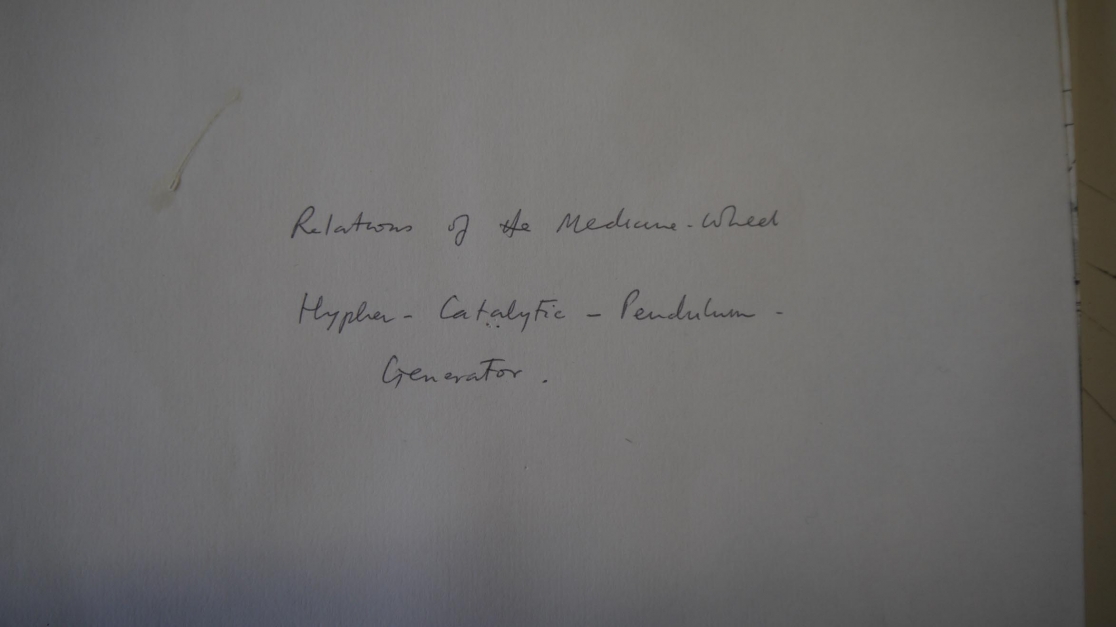 Relations of the Medicine-Wheel
Hypher - Catalytic - Pendulum -
Generator.